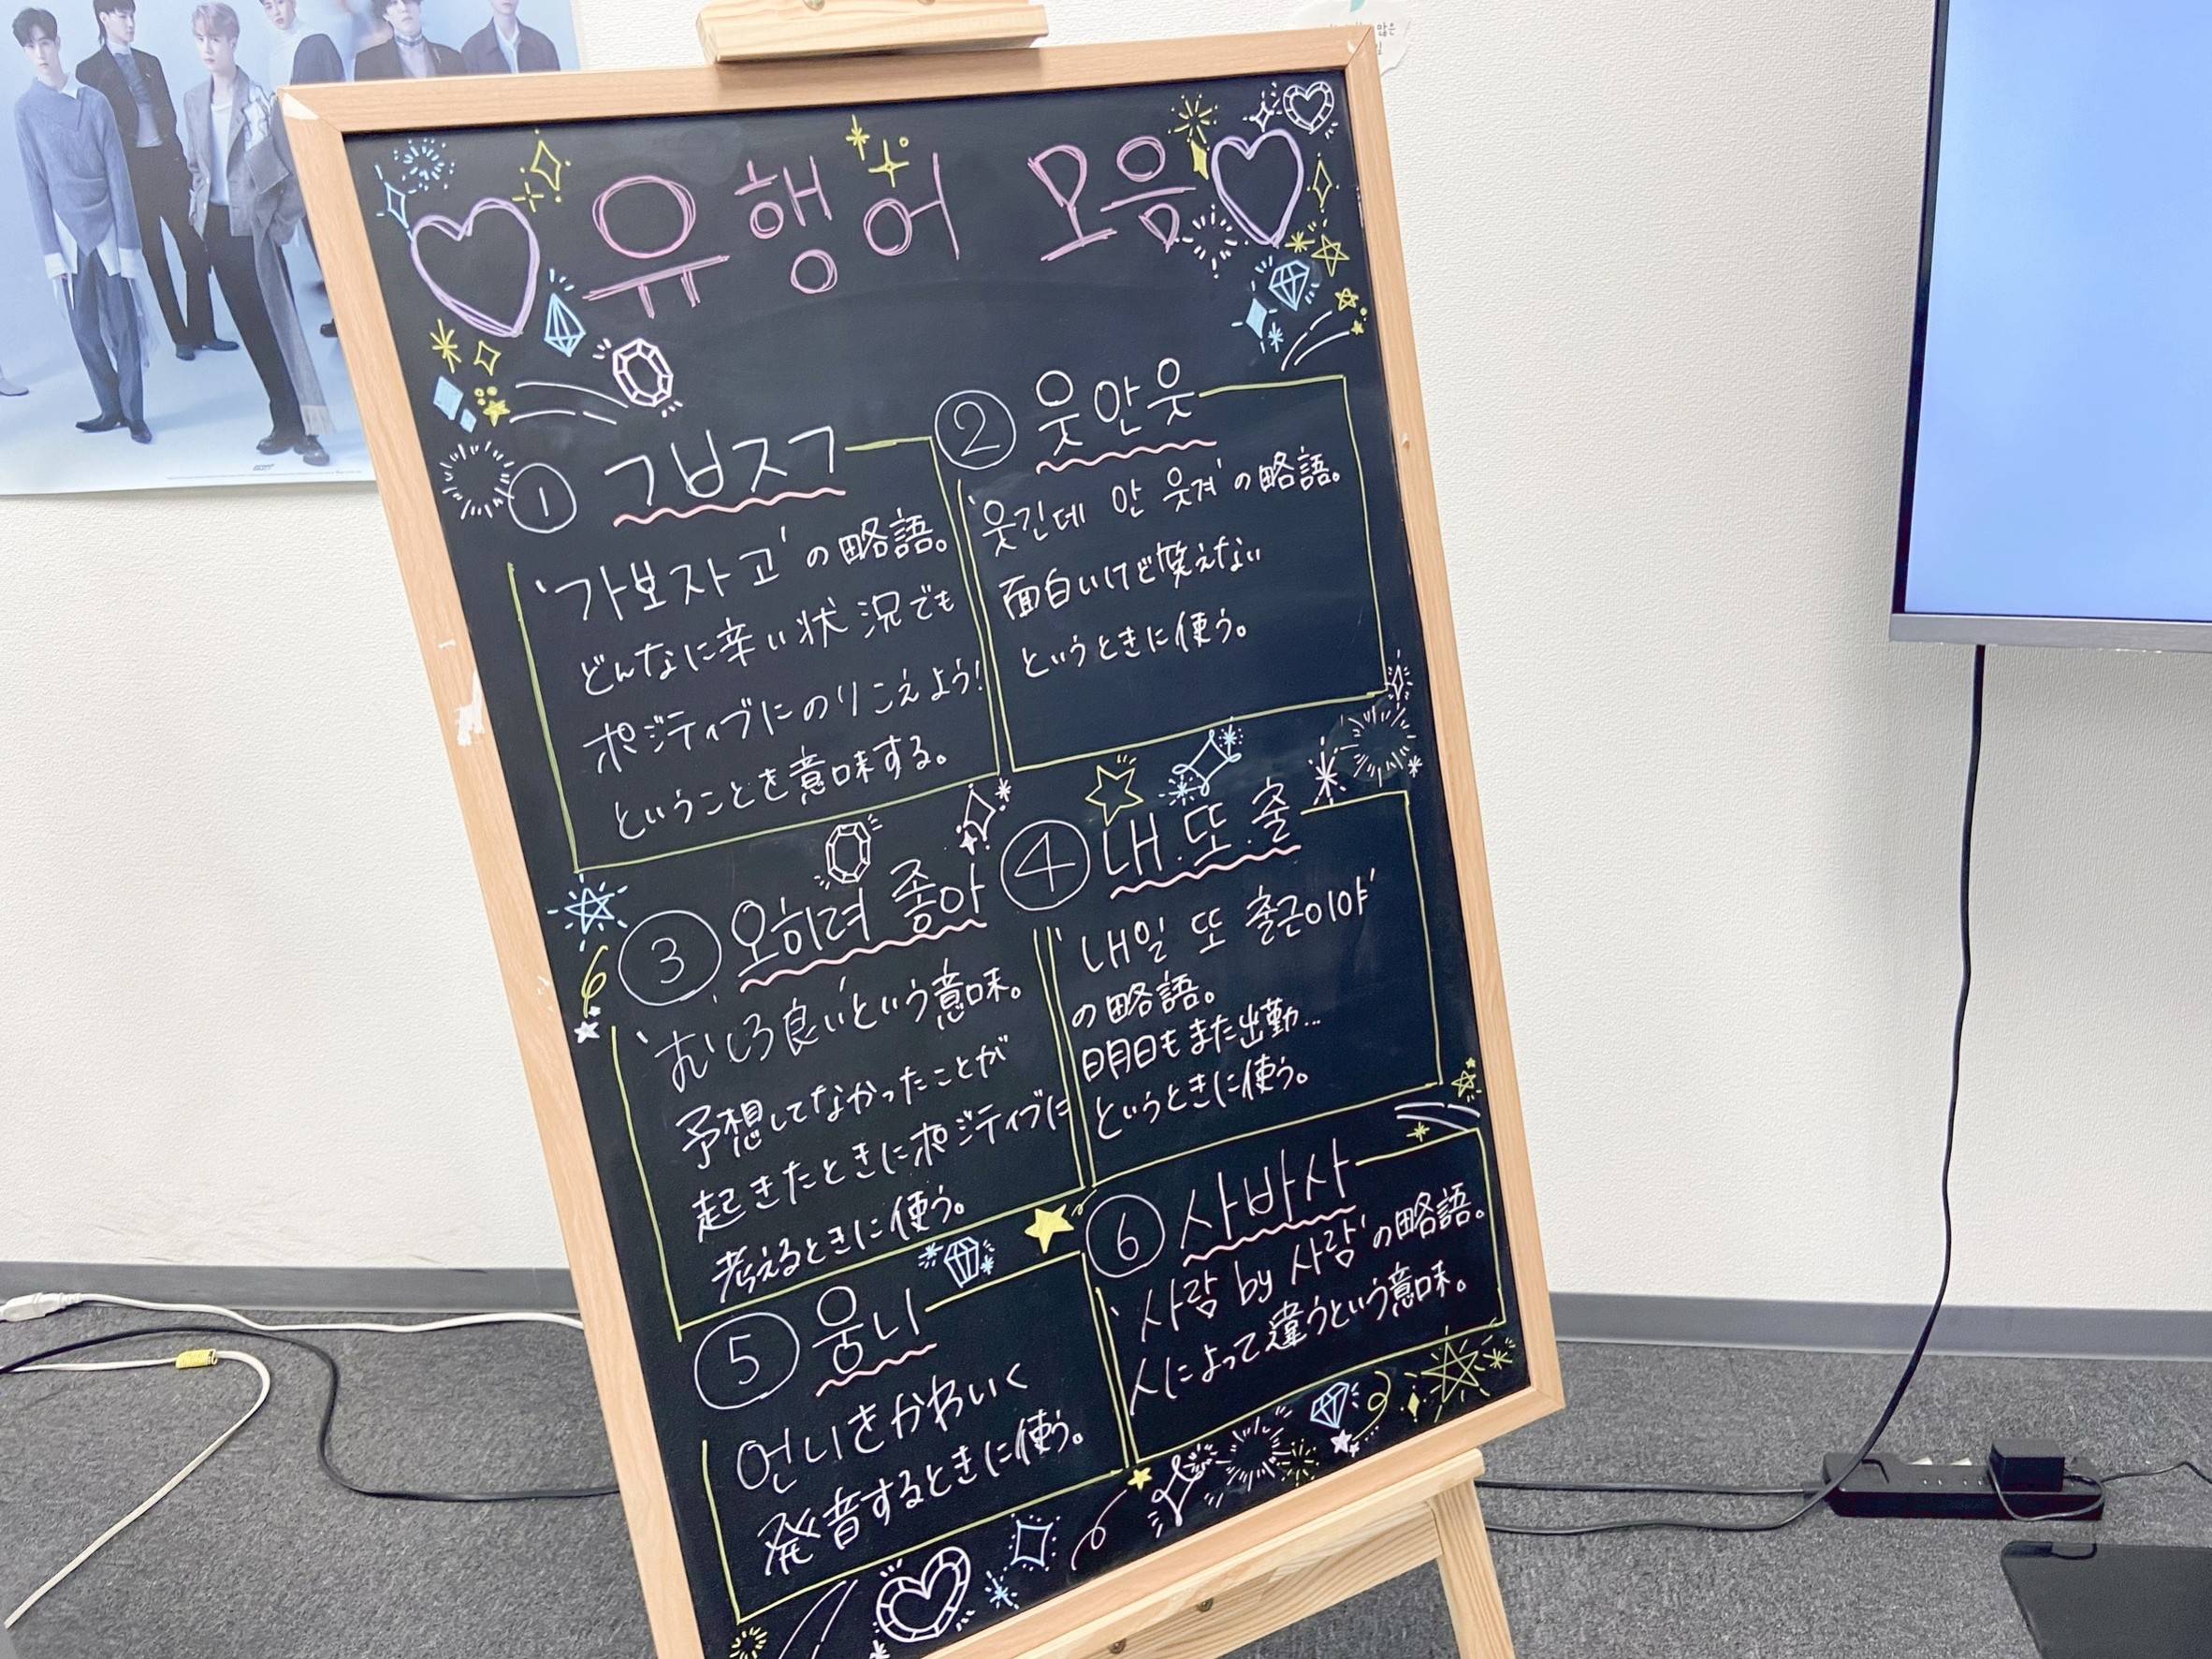 유행어 모음
① ㄱㅂㅈㄱ
'가보자고'の略語。
どんなに辛い状況でも
ポジティブにのりこえよう!
ということを意味する。
② 웃안웃
'웃긴데 안 웃겨'の略語。
面白いけど笑えない
というときに使う。
③ 오히려 좋아
'むしろ良い'という意味。
予想してなかったことが
起きたときにポジティブに
考えるときに使う。
④ 내.또.출
'내일 또 출근이야'
の略語。
明日もまた出勤...
というときに使う。
⑤ 웅니
언니をかわいく
発音するときに使う。
⑥ 사바사
'사람 by 사람'の略語。
人によって違うという意味。